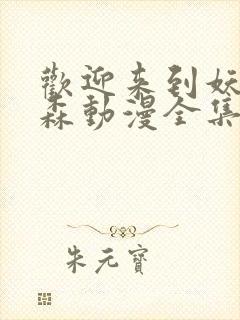 歡迎来到妖
森動漫全集
朱元寶